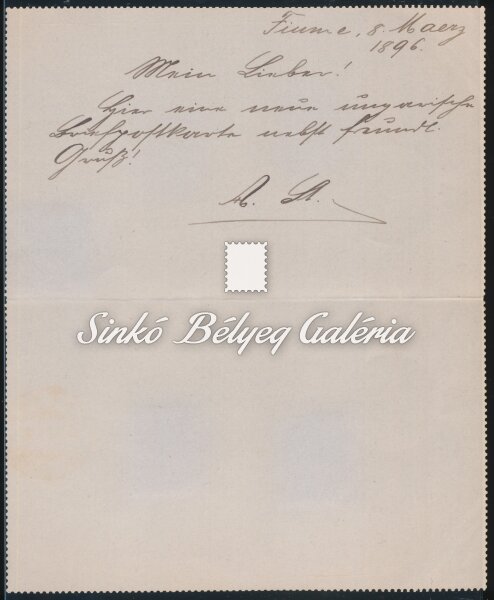 Fiume, 8. Maerz
1896.
Mein Lieber!
Hier eine neue ungarische
Briefpostkarte nebst freundl.
Gruß!
A. St.
Sinkó Bélyeg Galéria